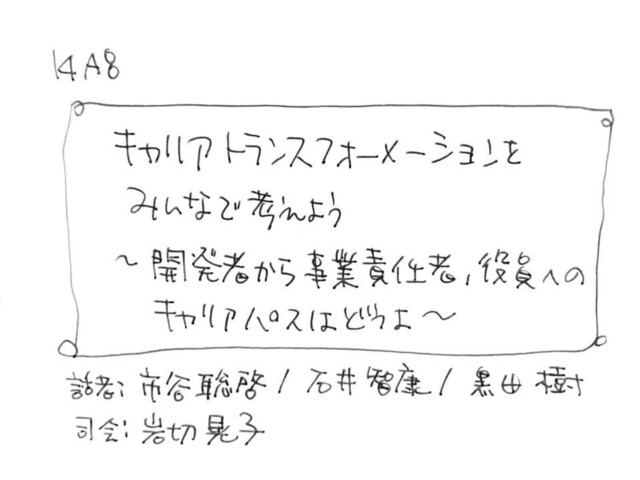 14A8
キャリアトランスフォーメーションを
みんなで考えよう
～開発者から事業責任者,役員への
キャリアパスはどうよ～
話者:市谷聡啓/石井智康/黒田樹
司会:岩切晃子